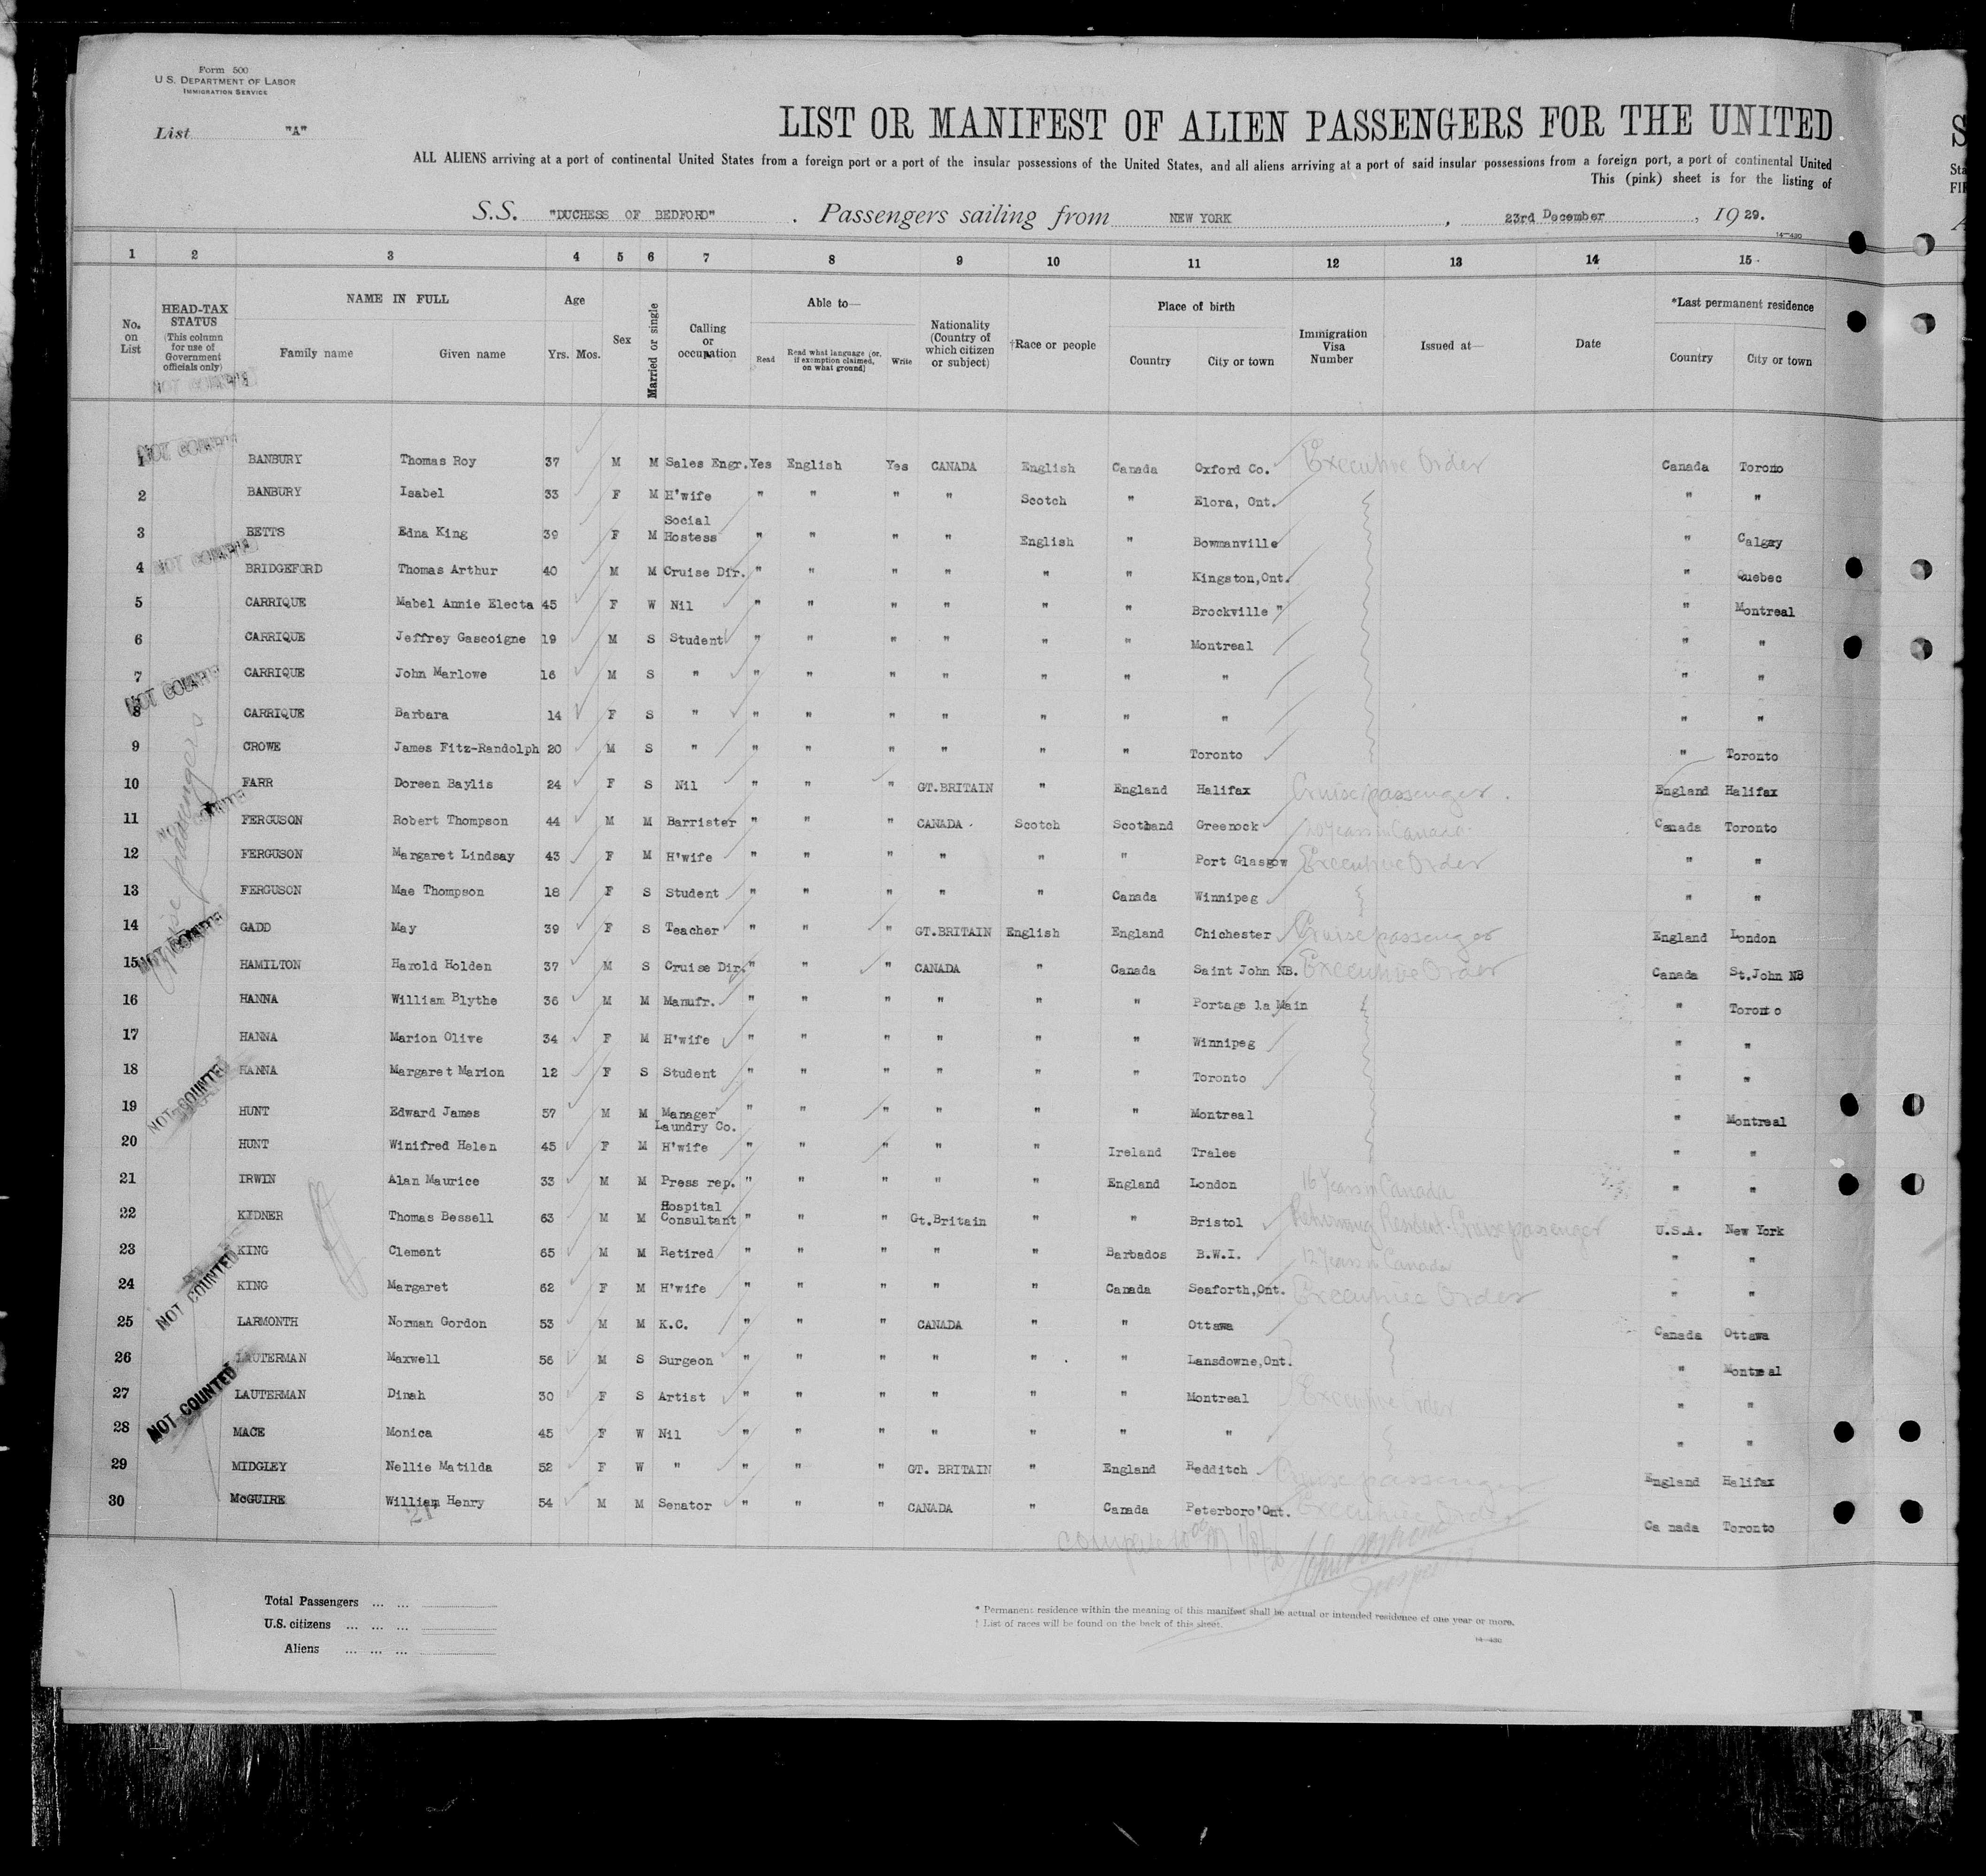 Form 500
U.S. DEPARTMENT OF LABOR
IMMIGRATION SERVICE
List "A"
LIST OR MANIFEST OF ALIEN PASSENGERS FOR THE UNITED
ALL ALIENS arriving at a port of continental United States from a foreign port or a port of the insular possessions of the United States, and all aliens arriving at a port of said insular possessions from a foreign port, a port of continental United
This (pink) sheet is for the listing of
S.S. "DUCHESS OF BEDFORD". Passengers sailing from NEW YORK, 23rd December, 1929.
14—430
1 2 3 4 5 6 7 8 9 10 11 12 13 14 15
No. on List
HEAD-TAX STATUS (This column for use of Government officials only)
NAME IN FULL Family name Given name
Age Yrs. Mos.
Sex
Married or single
Calling or occupation
Able to— Read Read what language (or, if exemption claimed, on what ground) Write
Nationality (Country of which citizen or subject)
†Race or people
Place of birth Country City or town
Immigration Visa Number
Issued at—
Date
*Last permanent residence Country City or town
1 BANBURY Thomas Roy 37 M M Sales Engr. Yes English Yes CANADA English Canada Oxford Co. Executive Order Canada Toronto
2 BANBURY Isabel 33 F M H'wife " " " " Scotch " Elora, Ont. " "
3 BETTS Edna King 39 F M Social Hostess " " " " English " Bowmanville " Calgay
4 BRIDGEFORD Thomas Arthur 40 M M Cruise Dir. " " " " " " Kingston,Ont. " Quebec
5 CARRIQUE Mabel Annie Electa 45 F W Nil " " " " " " Brockville " " Montreal
6 CARRIQUE Jeffrey Gascoigne 19 M S Student " " " " " " Montreal " "
7 CARRIQUE John Marlowe 16 M S " " " " " " " " " "
8 CARRIQUE Barbara 14 F S " " " " " " " " " "
9 CROWE James Fitz-Randolph 20 M S " " " " " " " Toronto " Toronto
10 FARR Doreen Baylis 24 F S Nil " " " GT.BRITAIN " England Halifax Cruise passenger. England Halifax
11 FERGUSON Robert Thompson 44 M M Barrister " " " CANADA. Scotch Scotland Greenock 20 Years in Canada. Canada Toronto
12 FERGUSON Margaret Lindsay 43 F M H'wife " " " " " " Port Glasgow Executive Order " "
13 FERGUSON Mae Thompson 18 F S Student " " " " " Canada Winnipeg " "
14 GADD May 39 F S Teacher " " " GT.BRITAIN English England Chichester Cruise passenger England London
15 HAMILTON Harold Holden 37 M S Cruise Dir. " " " CANADA " Canada Saint John NB. Executive Order Canada St.John NB
16 HANNA William Blythe 36 M M Manufr. " " " " " " Portage la Main " Toronto
17 HANNA Marion Olive 34 F M H'wife " " " " " " Winnipeg " "
18 HANNA Margaret Marion 12 F S Student " " " " " " Toronto " "
19 HUNT Edward James 57 M M Manager Laundry Co. " " " " " " Montreal " Montreal
20 HUNT Winifred Helen 45 F M H'wife " " " " " Ireland Tralee " "
21 IRWIN Alan Maurice 33 M M Press rep. " " " " " England London 16 Years in Canada " "
22 KIDNER Thomas Bessell 63 M M Hospital Consultant " " " Gt.Britain " " Bristol Returning Resident. Cruise passenger U.S.A. New York
23 KING Clement 65 M M Retired " " " " " Barbados B.W.I. 12 Years in Canada " "
24 KING Margaret 62 F M H'wife " " " " " Canada Seaforth,Ont. Executive Order " "
25 LARMONTH Norman Gordon 53 M M K.C. " " " CANADA " " Ottawa Canada Ottawa
26 LAUTERMAN Maxwell 56 M S Surgeon " " " " " " Lansdowne,Ont. " Montreal
27 LAUTERMAN Dinah 30 F S Artist " " " " " " Montreal Executive Order " "
28 MACE Monica 45 F W Nil " " " " " " " " "
29 MIDGLEY Nellie Matilda 52 F W " " " " GT. BRITAIN " England Redditch Cruise passenger England Halifax
30 McGUIRE William Henry 54 M M Senator " " " CANADA " Canada Peterboro'Ont. Executive Order Canada Toronto
21
NOT COUNTED
NOT COUNTED
NOT COUNTED
Cruise passengers
Inspector
Total Passengers ... ...
U.S. citizens ... ... ...
Aliens ... ... ...
* Permanent residence within the meaning of this manifest shall be actual or intended residence of one year or more.
† List of races will be found on the back of this sheet.
14—430